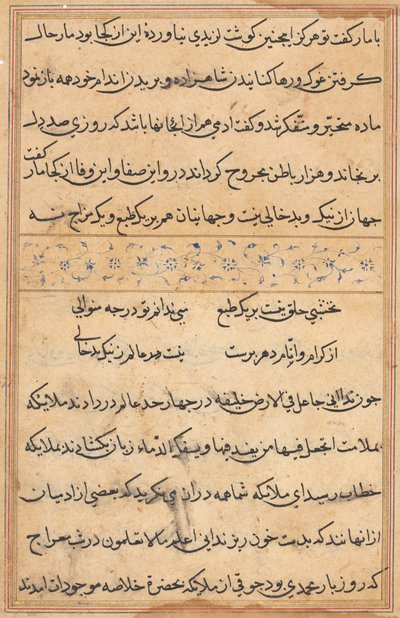 با مار گفت تو هرگز اینچنین گوشت لذیذی نیاوردهٔ این از کجا بود مار حال
گرفتن غوک و رها کنانیدن شاهزاده و بریدن اندام خود همه باز نمود
ماده متحیر و متفکر شد و گفت آدمی هم از آنها باشد که روزی صد دل
برنجاند و هزار باطن مجروح گرداند درو این صفا و این وفا از کجا مار گفت
جهان از نیک و بد خالی نیست و جهانیان هم بر یک طبع و یک مزاج نه
نخشبی خلق نیست بر یک طبع
می نداند تو درجه متوالی
از کرام و لئام دهر پرست
نیست در عالم ز نیک بد خالی
چون ندا انی جاعل فی الارض خلیفه در چهار حد عالم در دادند ملائکه
بملامت اتجعل فیها من یفسد فیها و یسفک الدماء زبان بگشادند بملائکه
خطاب رسید ای ملائکه شما همه در آن می نگرید که بعضی از آدمیان
از آنها نند که بدست خون ریزند انی اعلم ما لا تعلمون در شب معراج
که روز بار محمدی بود جوقی از ملائکه بحضرة خلاصه موجودات آمدند